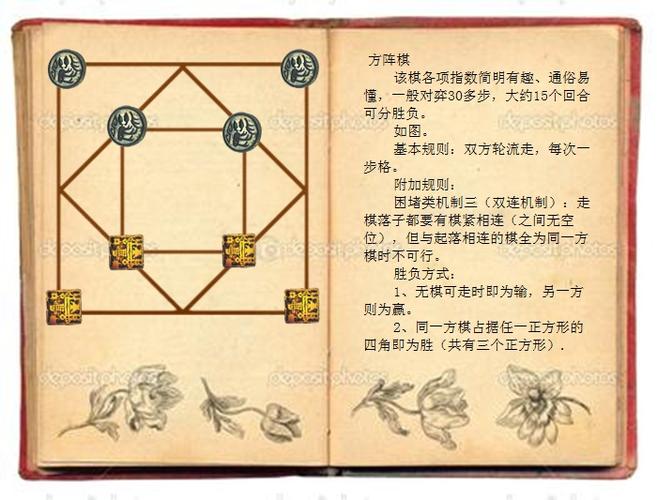 方阵棋
该棋各项指数简明有趣、通俗易
懂，一般对弈30多步，大约15个回合
可分胜负。
如图。
基本规则：双方轮流走，每次一
步格。
附加规则：
困堵类机制三（双连机制）：走
棋落子都要有棋紧相连（之间无空
位），但与起落相连的棋全为同一方
棋时不可行。
胜负方式：
1、无棋可走时即为输，另一方
则为赢。
2、同一方棋占据任一正方形的
四角即为胜（共有三个正方形）.
depositphotos
depositphotos
depositphotos
depositphotos